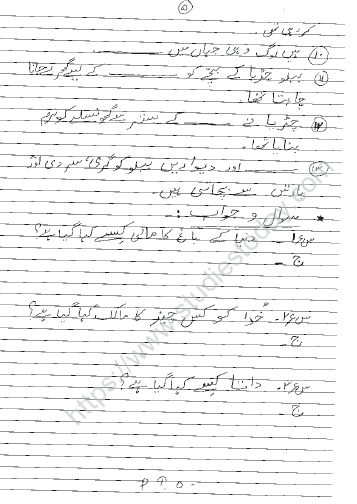 ۵
کر رہی تھی۔
(۱۰) ہیں لوگ وہی جہاں میں ـــــــ
(۱۱) ببلو چڑیا کے بچے کو ـــــــ کے لیے گھر لے جانا
چاہتا تھا۔
(۱۲) چڑیا نے ـــــــ کے سے گھونسلے کو نرم
بنایا تھا۔
(۱۳) ـــــــ اور دیواریں ہم کو گرمی، سردی اور
بارش سے بچاتی ہیں۔
* سوال و جواب :
س۱۔ دنیا کے باغ کا مالی کسے کہا گیا ہے؟
ج۔
س۲۔ خدا کو کس چیز کا مالک کہا گیا ہے؟
ج۔
س۳۔ داتا کسے کہا گیا ہے؟
ج۔
P T O -
https://www.studiestoday.com